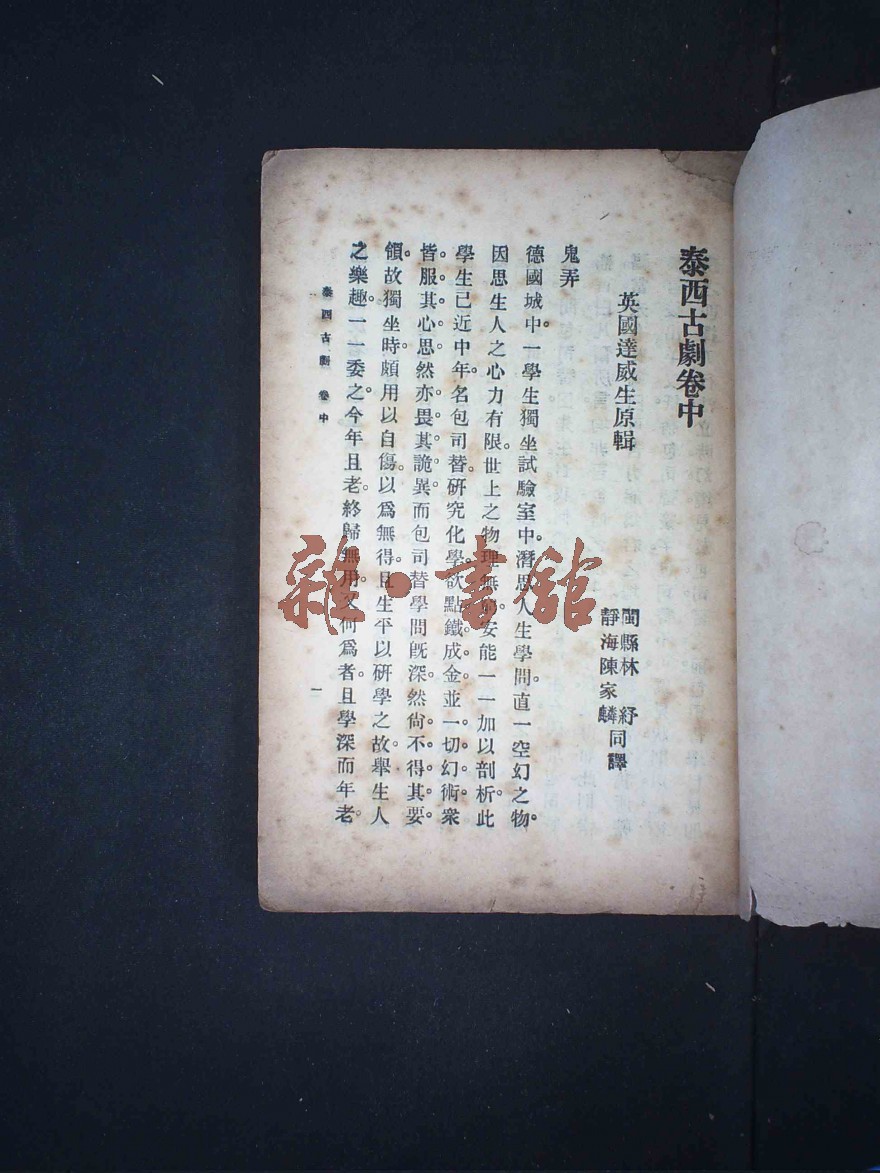 泰西古劇卷中
英國達威生原輯
閩縣林　紓
靜海陳家麟同譯
鬼弄
德國城中。一學生獨坐試驗室中。潛思人生學問。直一空幻之物。
因思生人之心力有限。世上之物理無 安能一一加以剖析。此
學生已近中年。名包司替。研究化學。欲點鐵成金。並一切幻術。衆
皆服其心思。然亦畏其詭異。而包司替學問旣深。然尙不得其要
領。故獨坐時。頗用以自傷。以爲無得。且生平以研學之故。舉生人
之樂趣。一一委之。今年且老。終歸無用。又何爲者。且學深而年老。
泰西古劇　卷中
一
雜·書館